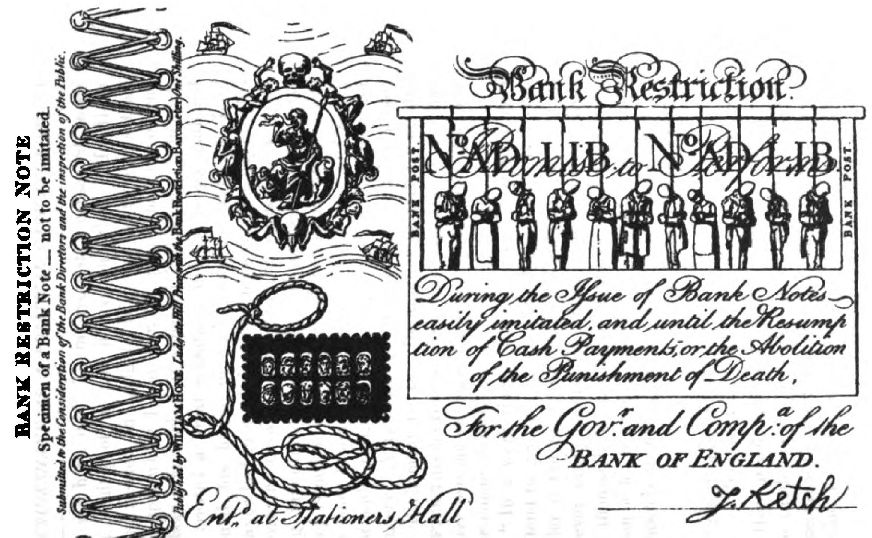 BANK RESTRICTION NOTE
Specimen of a Bank Note — not to be imitated.
Submitted to the Consideration of the Bank Directors and the inspection of the Public.
Bank Restriction.
No. AD LIB. No. AD LIB.
I Promise to Perform
BANK POST.
BANK POST.
During the Issue of Bank Notes
easily imitated, and until the Resump
tion of Cash Payments, or the Abolition
of the Punishment of Death,
For the Govr. and Compa. of the
BANK OF ENGLAND.
J. Ketch
Published by WILLIAM HONE Ludgate Hill
Entd. at Stationers Hall